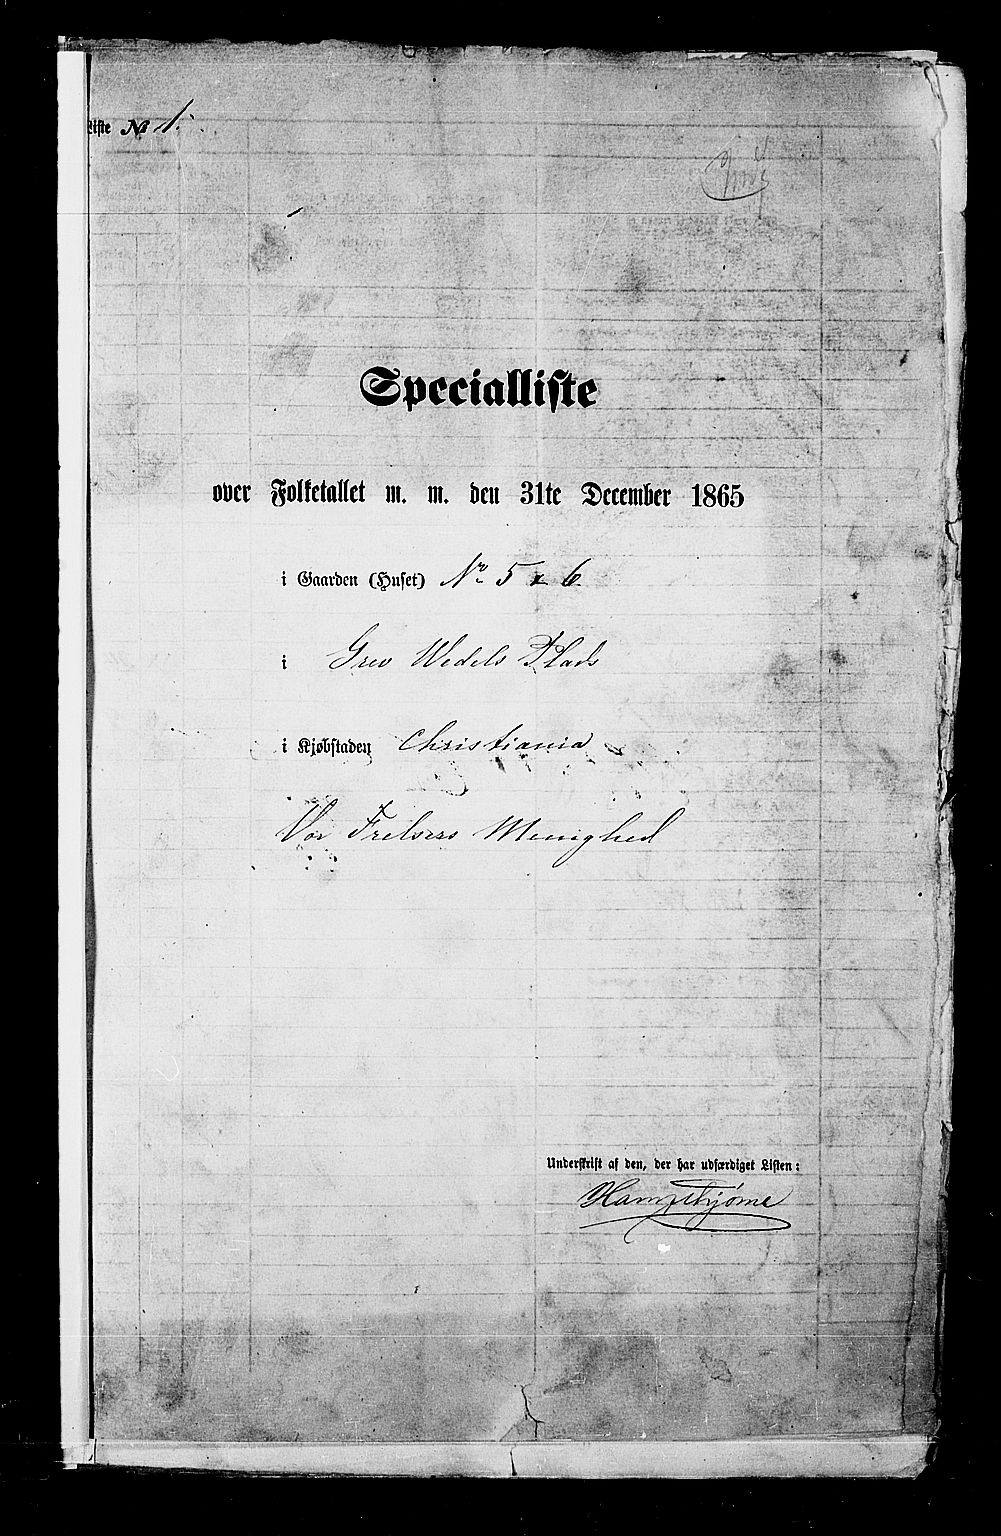 Liste № 1.
Specialliste
over Folketallet m. m. den 31te December 1865
i Gaarden (Huset) No 5 & 6.
i Grev Wedels Plads
i Kjøbstaden Christiania
Vor Frelsers Menighed
Underskrift af den, der har udfærdiget Listen: